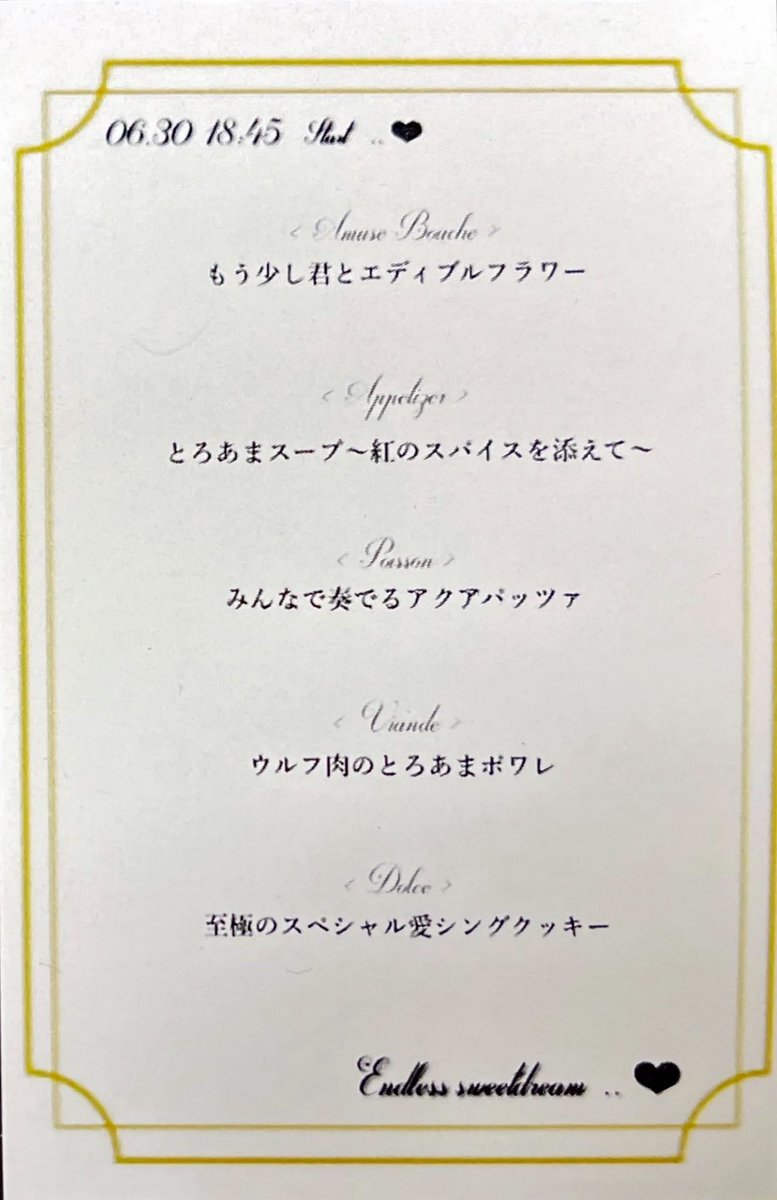 06.30 18:45 Start ..♥
< Amuse Bouche >
もう少し君とエディブルフラワー
< Appetizer >
とろあまスープ〜紅のスパイスを添えて〜
< Poisson >
みんなで奏でるアクアパッツァ
< Viande >
ウルフ肉のとろあまポワレ
< Dolce >
至極のスペシャル愛シングクッキー
Endless sweetdream ..♥